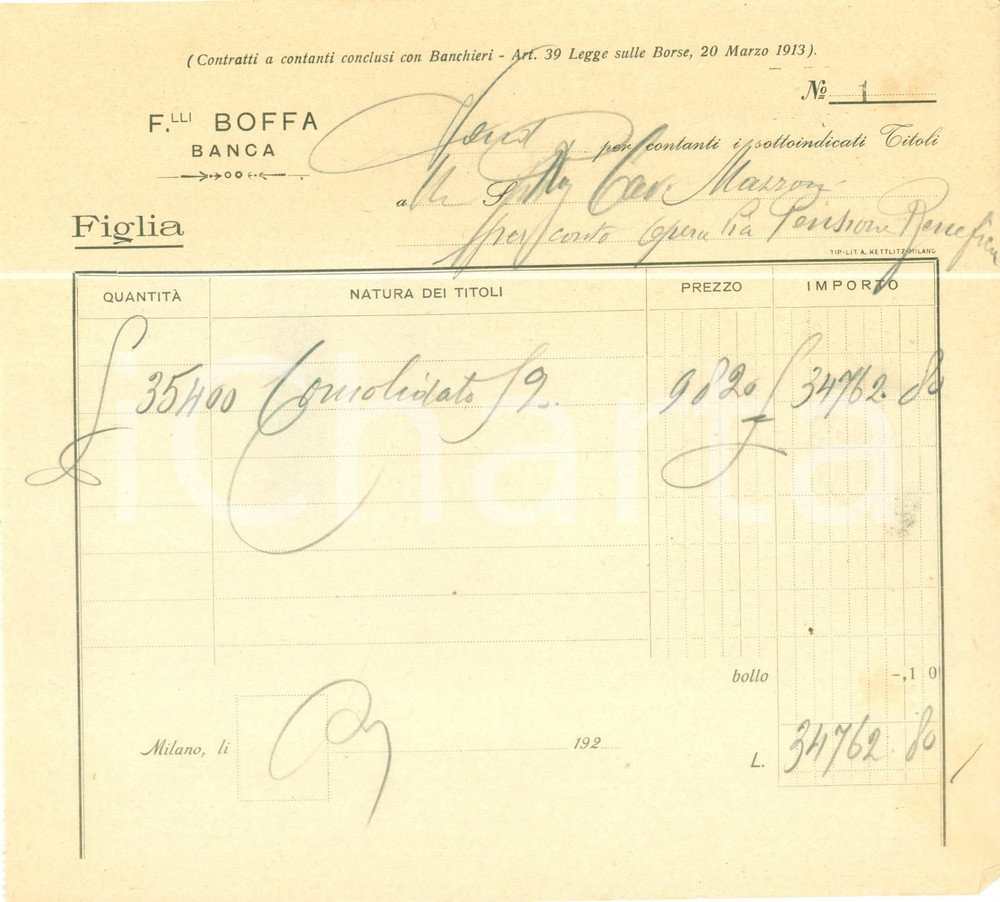 (Contratti a contanti conclusi con Banchieri - Art. 39 Legge sulle Borse, 20 Marzo 1913).
Nº 1
F.LLI BOFFA
BANCA
per contanti i sottoindicati Titoli
a S
Figlia
per conto Opera Pia Pensione Benefica
TIP-LIT. A. KETTLITZ-MILANO
QUANTITÀ NATURA DEI TITOLI PREZZO IMPORTO
£ 35400 Consolidato 9820 £ 34762.80
iCharta
bollo -,10
Milano, li 192
L. 34762.80